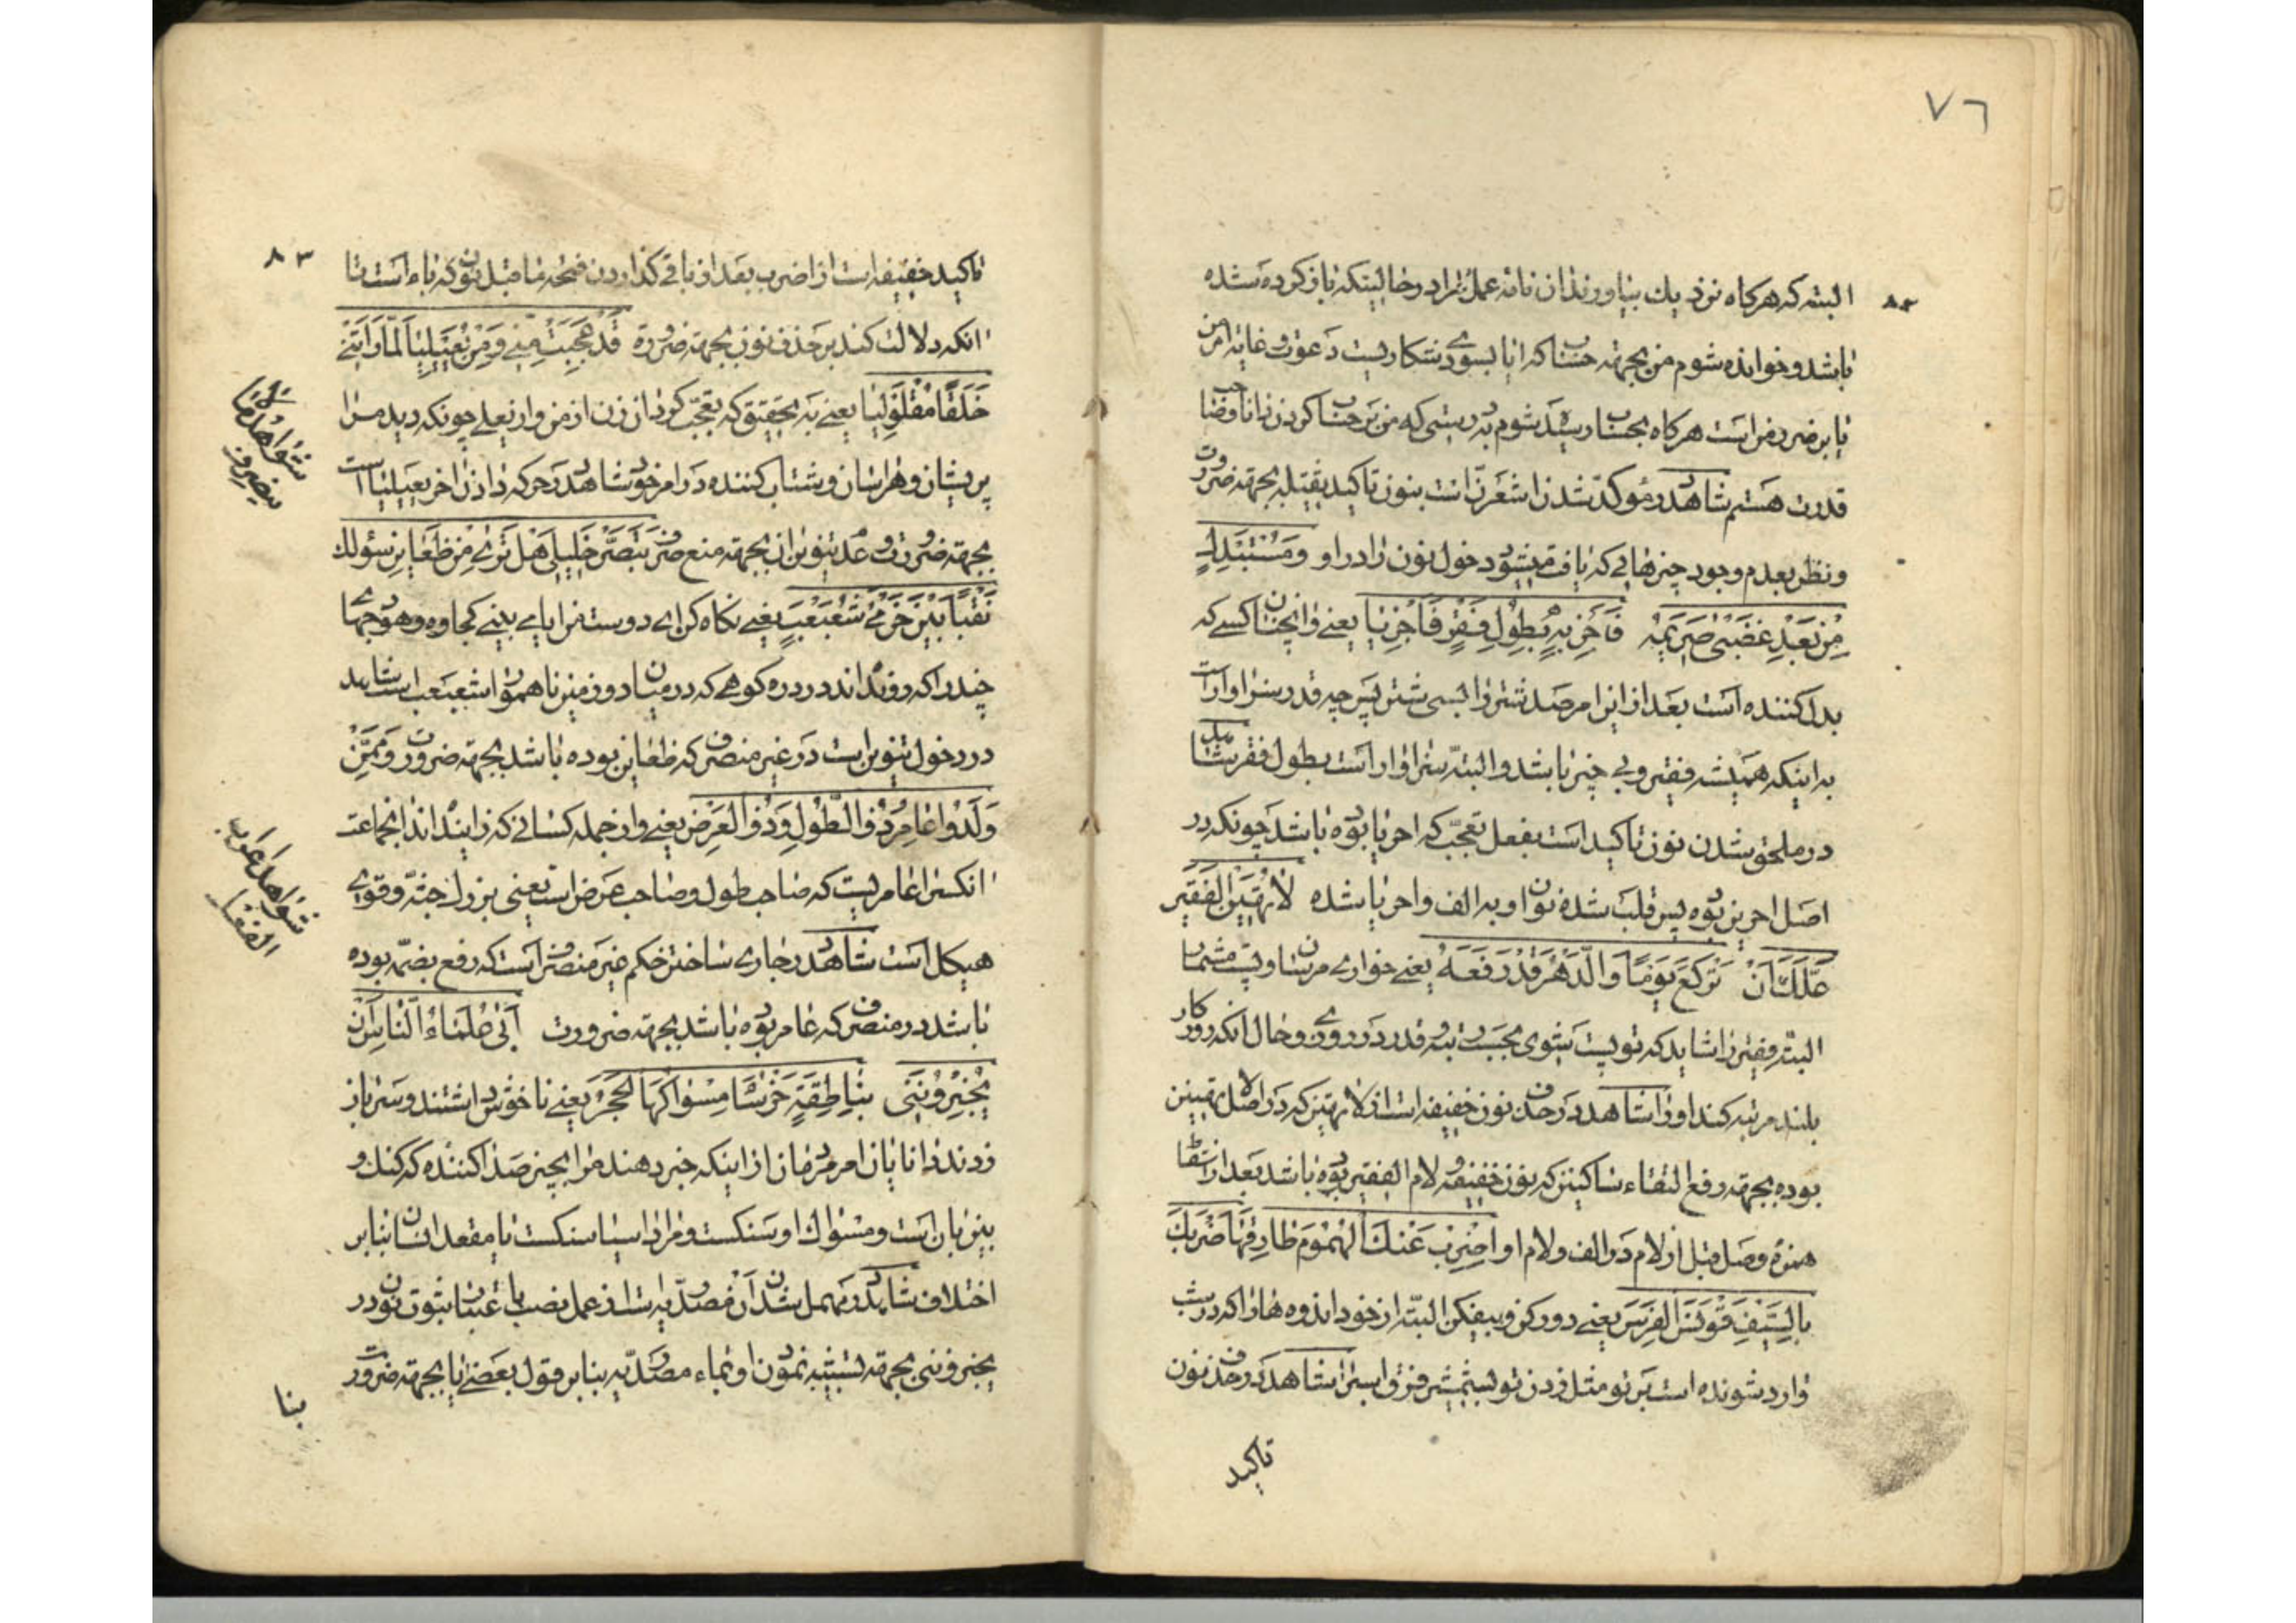 ٧٦
٨٢
البته که هرکاه نزدیك بیاورندان نامهٔ عمل را در حالیتکه باز کرده شده
باشد و خوانده شوم من بجهته حساب که ایا بسوی رستکاریست دعوت و غایهٔ امر من
یا بر ضرر من است هرکاه بحساب رسیده شوم بدرستی که من بر حساب کردن
قدرت هستم شاهد در مؤکد شدن اشعرن است بنون تاکید ثقیله بجهته ضرورت
و نظر بعدم وجود چیزهائی که یافت میشود دخول نون را در او وَمُسْتَبْدِلٍ
مِنْ بَعْدِ غَضْبٰی صُرَیْمَه فَاَحْرِ بِهِ بِطُولِ فَقْرٍ فَاَحْرِیٰا یعنے و انچنان کسے که
بدل کننده است بعد از این امر صد شتر را بسی شتر پس چه قدر سزاوار است
به اینکه همیشه فقیر و بی چیز باشد و البته سزاوار است بطول فقر شاهد
در ملحق شدن نون تاکید است بفعل تعجب که احریا بوده باشد چونکه در
اصل احرین بوده پس قلب شده نون او به الف و احریا شده لٰا تُهِینَ الْفَقِیرَ
عَلَّكَ اَنْ تَرْکَعَ یَوْمًا وَالدَّهْرُ قَدْ رَفَعَهُ یعنے خواری مرسان و پست مشمار
البته فقیر را شاید که تو پست شوی بحسب رتبه و قدر در روزی و حال انکه روزکار
بلند مرتبه کند او را شاهد در حذف نون خفیفه است از لا تهین که در اصل لا تهینن
بوده بجهته رفع التقاء ساکنین که نون خفیفه و لام الفقیر بوده باشد بعد از اسقاط
همزهٔ وصل قبل از لام در الف و لام او اِضْرِبَ عَنْكَ الْهُمُومَ طٰارِقَهٰا ضَرْبَكَ
بِالسَّیْفِ قَوْنَسَ الْفَرَسِ یعنے دور کن و بیفکن البته از خود اندوه ها را که در شب
وارد شونده است بر تو مثل زدن تو بشمشیر فرق اسب را شاهد در حذف نون
تاکید
٨٣
تاکید خفیفه است از اضرب بعد از باقی کذاردن فتحه ما قبل نون که باء است تا
انکه دلالت کند بر حذف نون بجهته ضرورة قَدْ عَجِبَتْ مِنّے وَمِنْ یُعَیْلِیٰا لَمّٰا رَاَتْنے
خَلَقًا مُقْلَوْلِیٰا یعنے به تحقیق که تعجب کرد ان زن از من و از یعیلی چونکه دید مرا
پریشان و هراسان و شتاب کننده در امر خود شاهد در حرکه دادن اخر یعیلیا است
بجهته ضرورت و عدم تنوین ان بجهته منع صرف تَبَصَّرْ خَلِیلِی هَلْ تَرٰی مِنْ ظَعٰاینٍ سؤلك
نَقْبًا بَیْنَ حَزْمَیْ شَعَبْعَبٍ یعنے نکاه کن ای دوست من ایا می بینے کجاوه و هودجهای
چند را که رونده اند در دره کوهے که در میان دو زمین ناهموار شعبعب است شاهد
در دخول تنوین است در غیر منصرف که ظعاین بوده باشد بجهته ضرورت وَمِمَّنْ
وَلَدُوا عٰامِرُ ذُو الطُّولِ وَذُو الْعَرْضِ یعنے و از جمله کسانے که زائیده اند انجماعت
انکس را عامریست که صاحب طول و صاحب عرض است یعنی بزرك جثه و قوی
هیکل است شاهد در جاری ساختن حکم غیر منصرف است که رفع بضمه بوده
باشد در منصرف که عامر بوده باشد بجهته ضرورت اَبٰی عُلَمٰاءُ النّٰاسِ اَنْ
یُخْبِرُونَنِی بِنٰاطِقَةٍ خَرْسٰا مِسْوٰاکُهَا الْحَجَرُ یعنے ناخوش داشتند و سرباز
زدند دانایان امر مردمان از اینکه خبر دهند مرا بچیز صدا کننده که کنك و
بیزبان است و مسواك او سنکست و مراد اسیا سنکست یا مقعد انسان بنابر
اختلاف شاهد در مهمل شدن ان مصدریه است از عمل نصب باعتبار ثبوت نون در
یخبروننی بجهته تشبیه نمودن او بماء مصدریه بنابر قول بعضے یا بجهته ضرورت
بنا
شواهد ما لا ینصرف
شواهد اعراب الفعل